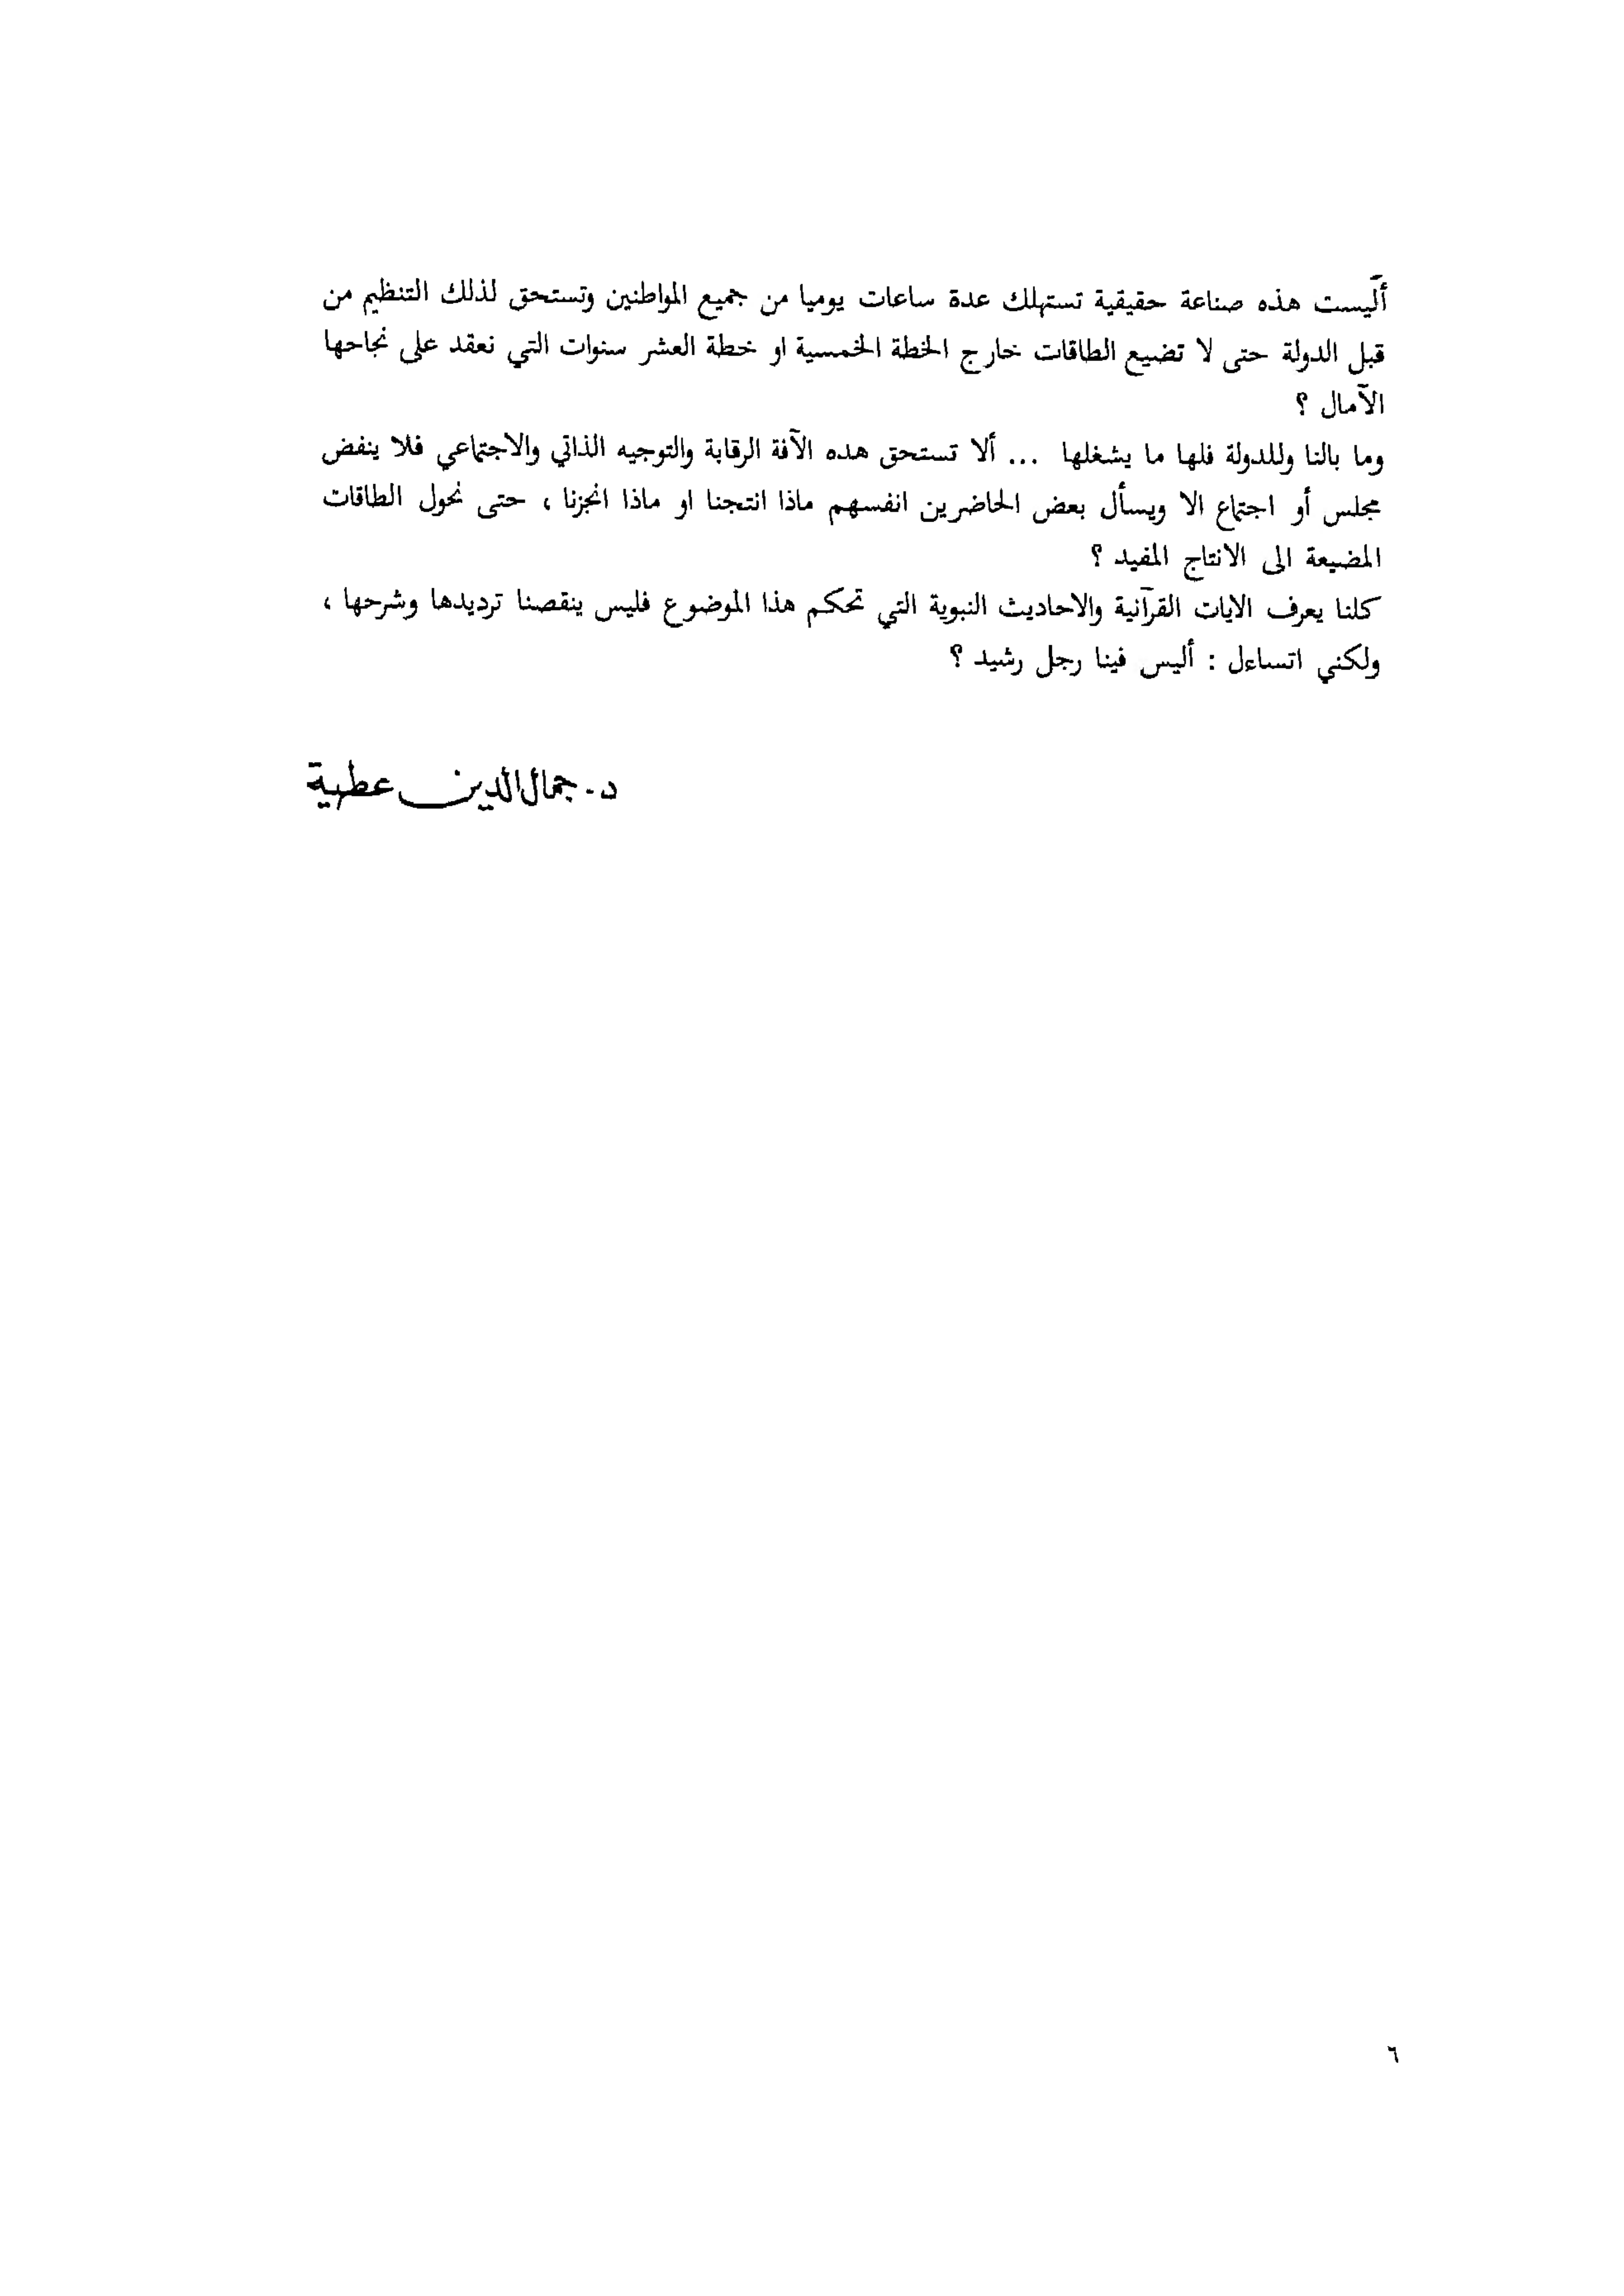 أليست هذه صناعة حقيقية تستهلك عدة ساعات يوميا من جميع المواطنين وتستحق لذلك التنظيم من
قبل الدولة حتى لا تضيع الطاقات خارج الخطة الخمسية او خطة العشر سنوات التي نعقد على نجاحها
الآمال ؟
وما بالنا وللدولة فلها ما يشغلها ... ألا تستحق هده الآفة الرقابة والتوجيه الذاتي والاجتماعي فلا ينفض
مجلس أو اجتماع الا ويسأل بعض الحاضرين انفسهم ماذا انتجنا او ماذا انجزنا ، حتى نحول الطاقات
المضيعة الى الانتاج المفيد ؟
كلنا يعرف الايات القرآنية والاحاديث النبوية التي تحكم هذا الموضوع فليس ينقصنا ترديدها وشرحها ،
ولكني اتساءل : أليس فينا رجل رشيد ؟
د. جمال الدين عطية
٦